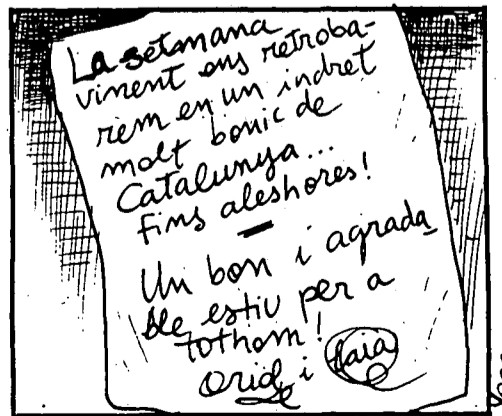 La setmana
vinent ens retroba-
rem en un indret
molt bonic de
Catalunya...
fins aleshores!
Un bon i agrada
ble estiu per a
tothom!
Oriol i Laia